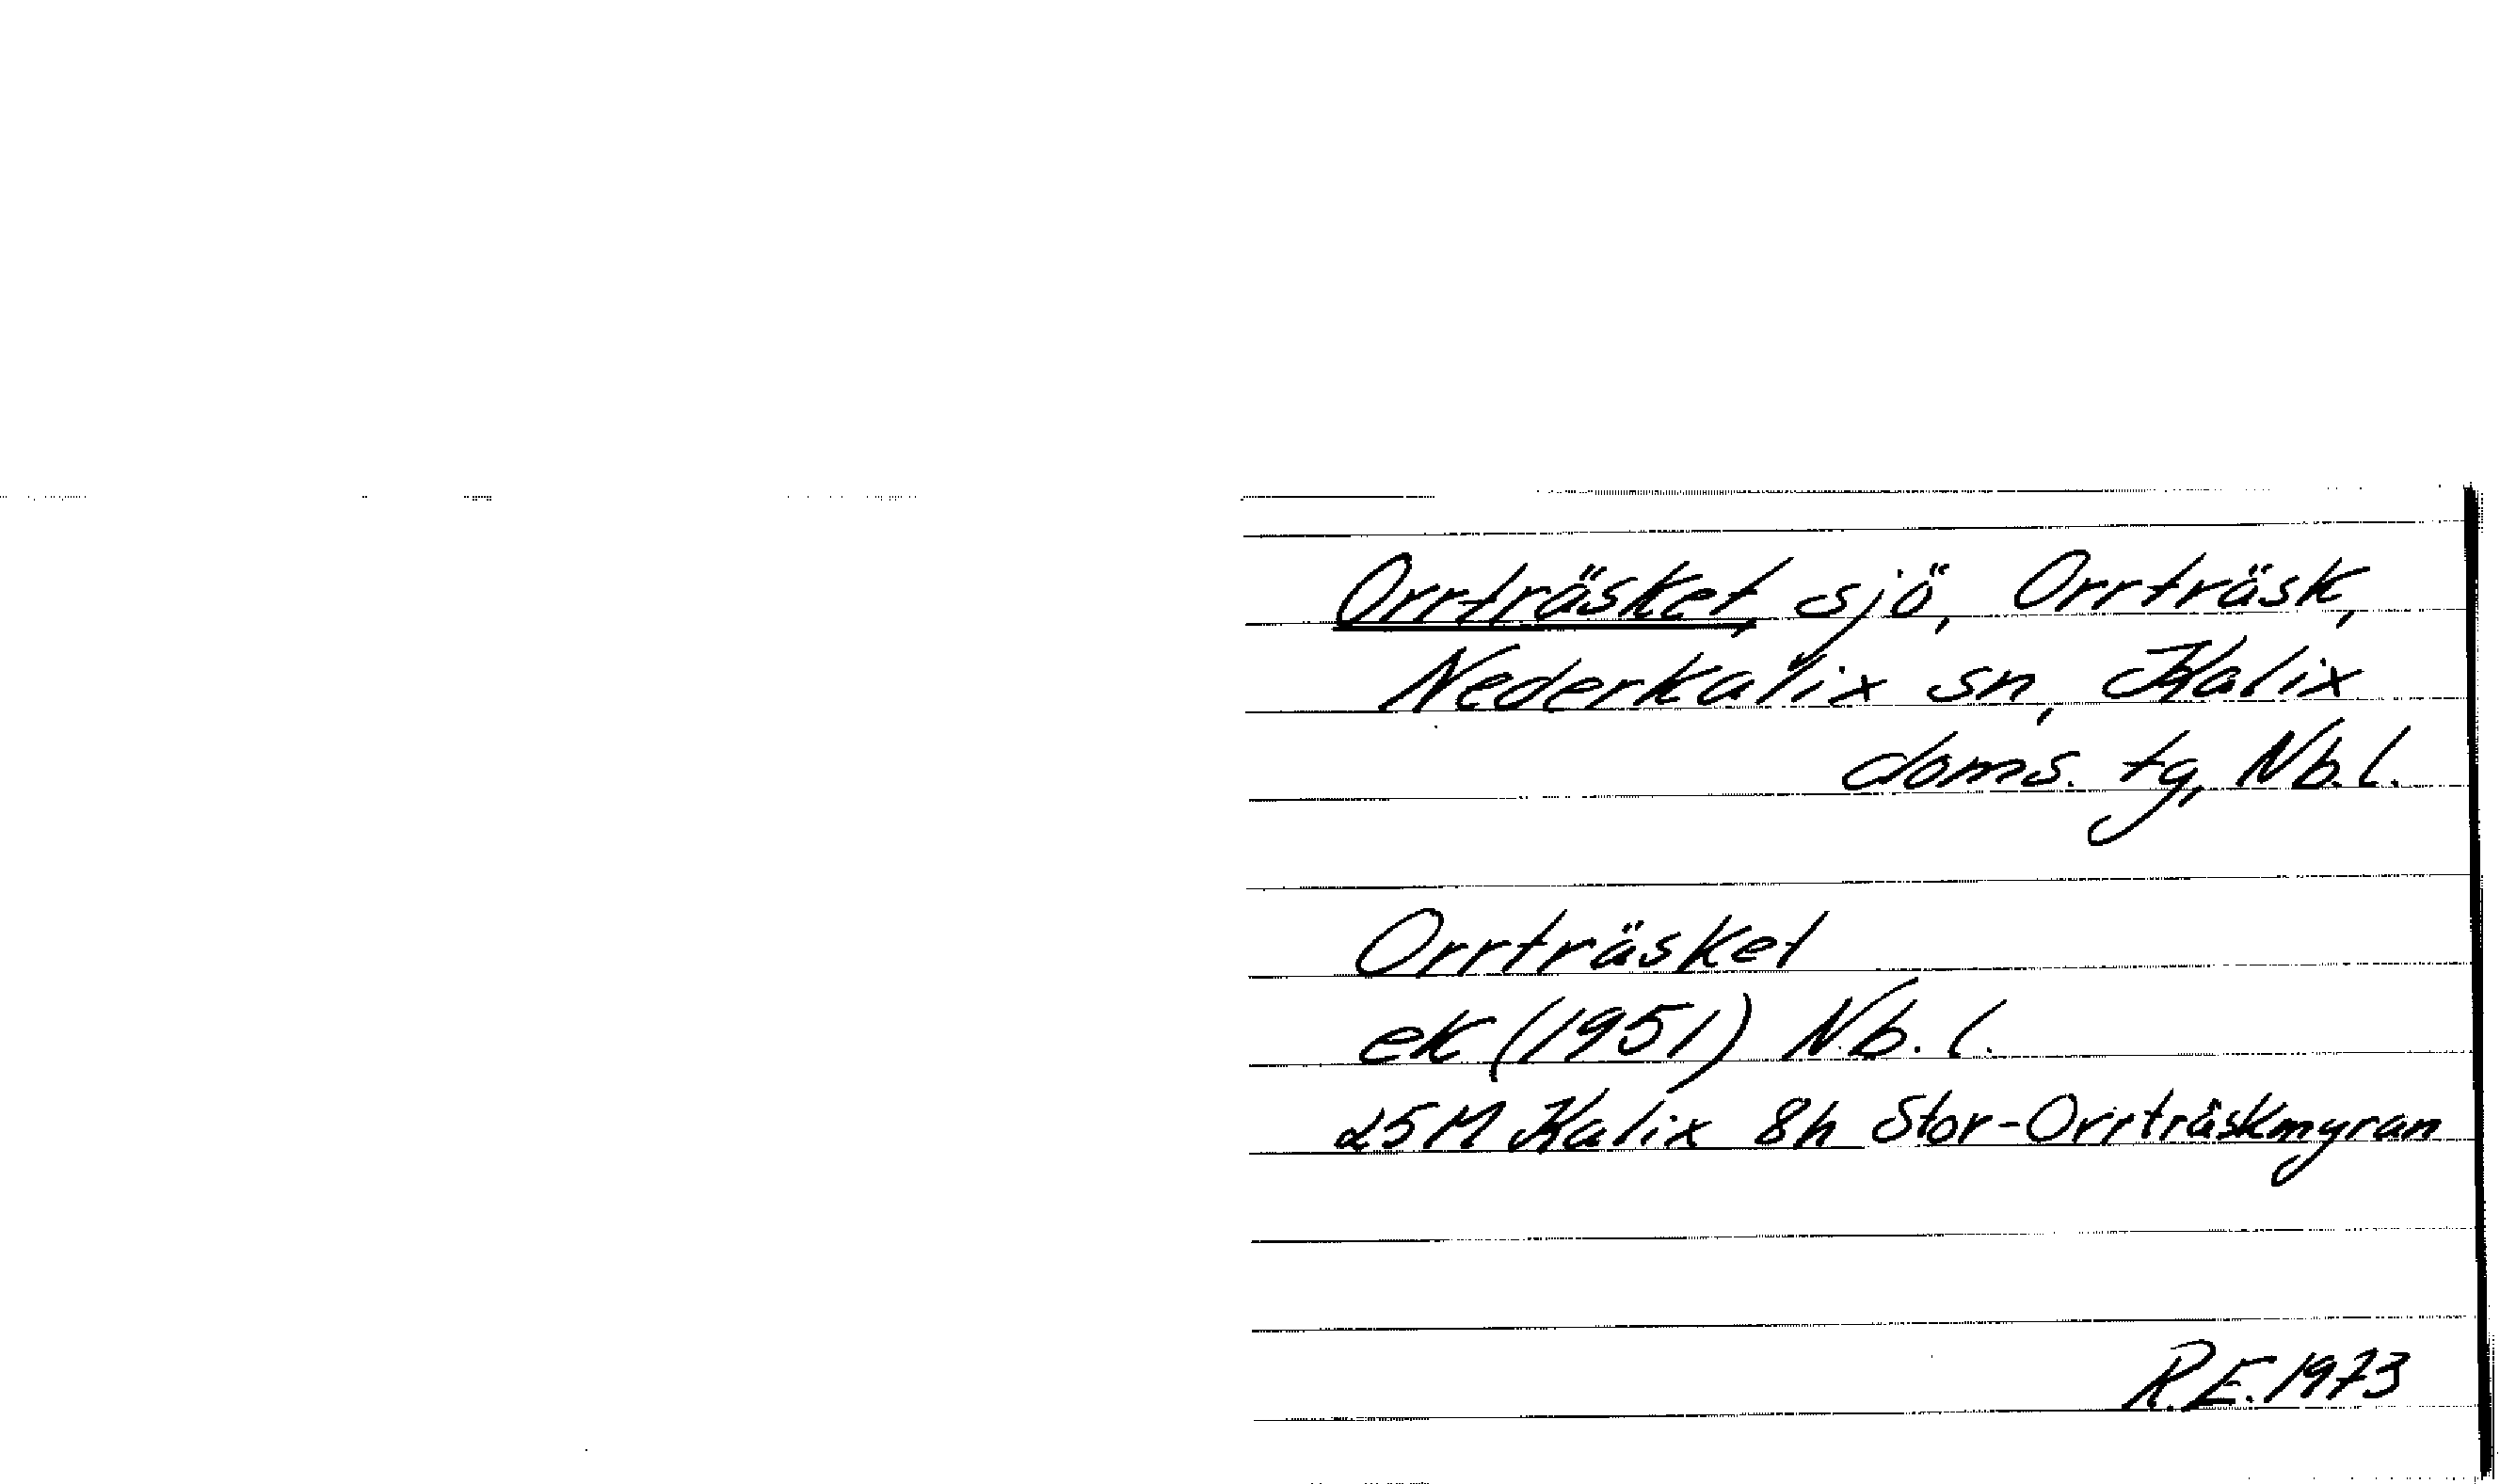 Orrträsket, sjö, Orrträsk,
Nederkalix sn, Kalix
doms. tg, Nb.l.
Orrträsket
ek (1951) N.b.l.
25M Kalix 8h Stor-Orrträskmyran
R.E. 1973